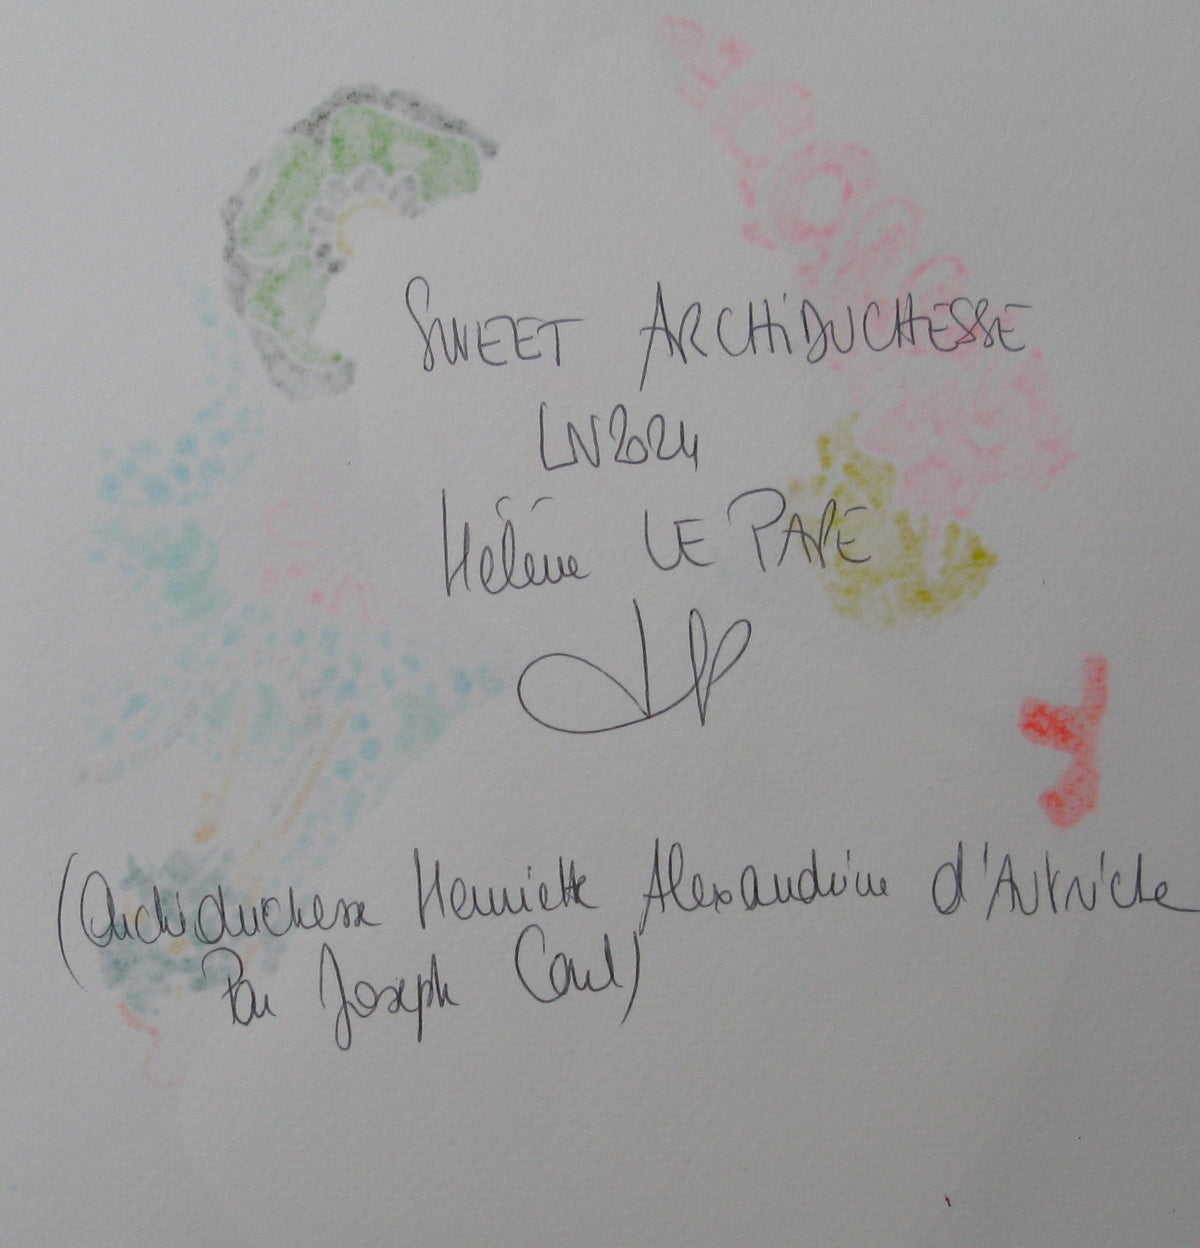 SWEET ARCHiDUCHESSE
LN2024
Hélène LE PAPE
(Archiduchesse Henriette Alexandrine d'Autriche
Par Joseph